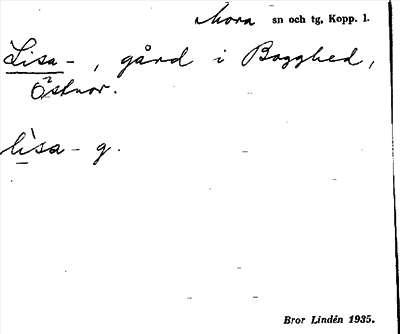 Mora sn och tg, Kopp. l.
Lisa-, gård i Bogghed,
Östnor.
li̠sa- g.
Bror Lindén 1935.